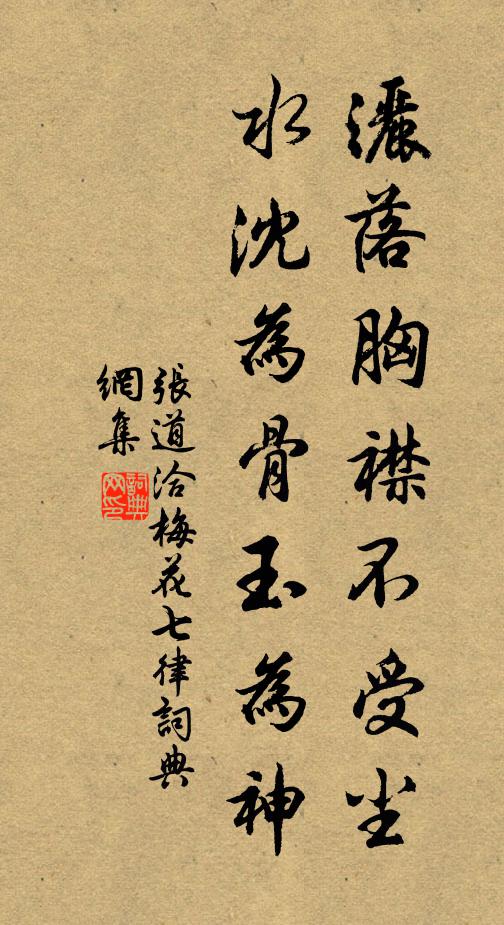 灑落胸襟不受尘
水沈為骨玉為神
張道洽梅花七律詞典
網集
詞典
网印